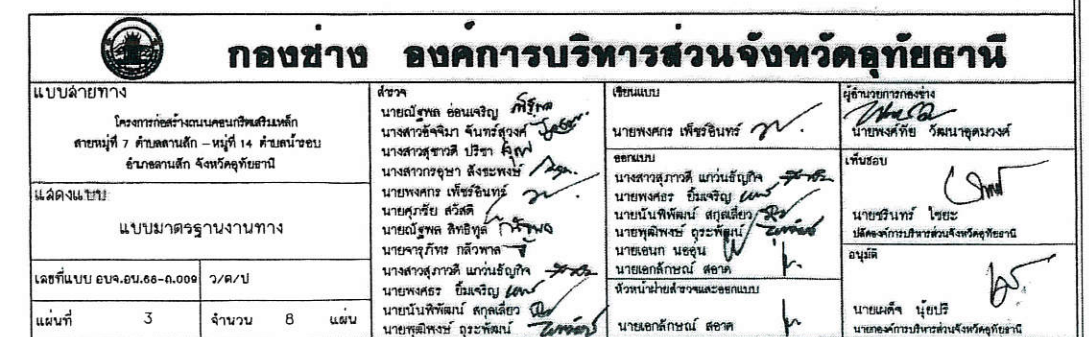 กองช่าง องค์การบริหารส่วนจังหวัดอุทัยธานี
แบบสายทาง
โครงการก่อสร้างถนนคอนกรีตเสริมเหล็ก
สายหมู่ที่ 7 ตำบลลานสัก – หมู่ที่ 14 ตำบลน้ำรอบ
อำเภอลานสัก จังหวัดอุทัยธานี
แสดงแบบ
แบบมาตรฐานงานทาง
เลขที่แบบ อบจ.อน.66-ถ.009 ว/ด/ป
แผ่นที่ 3 จำนวน 8 แผ่น
สำรวจ
นายณัฐพล อ่อนเจริญ
นางสาวอัจจิมา จันทร์สุวงค์
นางสาวสุชาวดี ปรีชา
นางสาวกรอุษา สังขะพงษ์
นายพงศกร เพ็ชร์อินทร์
นายศุภชัย สวัสดี
นายณัฐพล สิทธิทูล
นายจารุภัทร กลีวพาล
นางสาวสุภาวดี แกว่นธัญกิจ
นายพงศธร ยิ้มเจริญ
นายนันพิพัฒน์ สกุลเลี่ยว
นายพุฒิพงษ์ ถุระพัฒน์
เขียนแบบ
นายพงศกร เพ็ชร์อินทร์
ออกแบบ
นางสาวสุภาวดี แกว่นธัญกิจ
นายพงศธร ยิ้มเจริญ
นายนันพิพัฒน์ สกุลเลี่ยว
นายพุฒิพงษ์ ถุระพัฒน์
นายเอนก นออุ่น
นายเอกลักษณ์ สอาด
หัวหน้าฝ่ายสำรวจและออกแบบ
นายเอกลักษณ์ สอาด
ผู้อำนวยการกองช่าง
นายพงศ์ทัย วัฒนาอุดมวงค์
เห็นชอบ
นายชรินทร์ ไชยะ
ปลัดองค์การบริหารส่วนจังหวัดอุทัยธานี
อนุมัติ
นายเผด็จ นุ้ยปรี
นายกองค์การบริหารส่วนจังหวัดอุทัยธานี